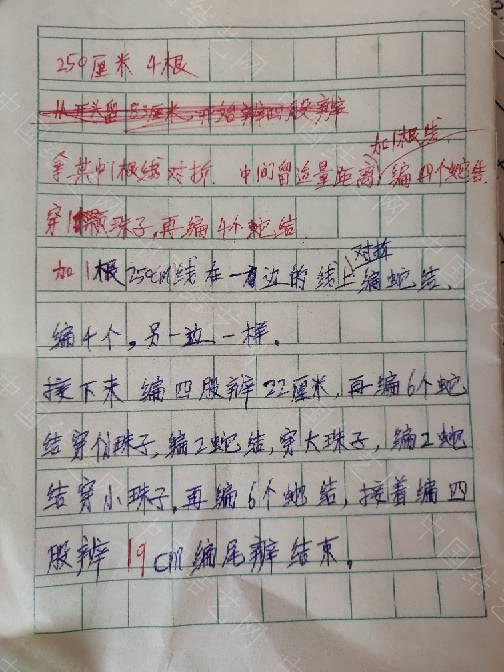 250厘米 4根
从开头留83厘米,开始辫四股辫
拿其中1根线对折. 中间留适量距离加1根线,编四个蛇结.
穿1颗珠子,再编4个蛇结
加1根250cm线在一边的线上对折编蛇结.
编4个,另一边一样.
接下来 编四股辫22厘米,再编6个蛇
结穿小珠子,编2蛇结,穿大珠子,编2蛇
结穿小珠子.再编6个蛇结,接着编四
股辨19cm编尾辫结束.
中国结艺网